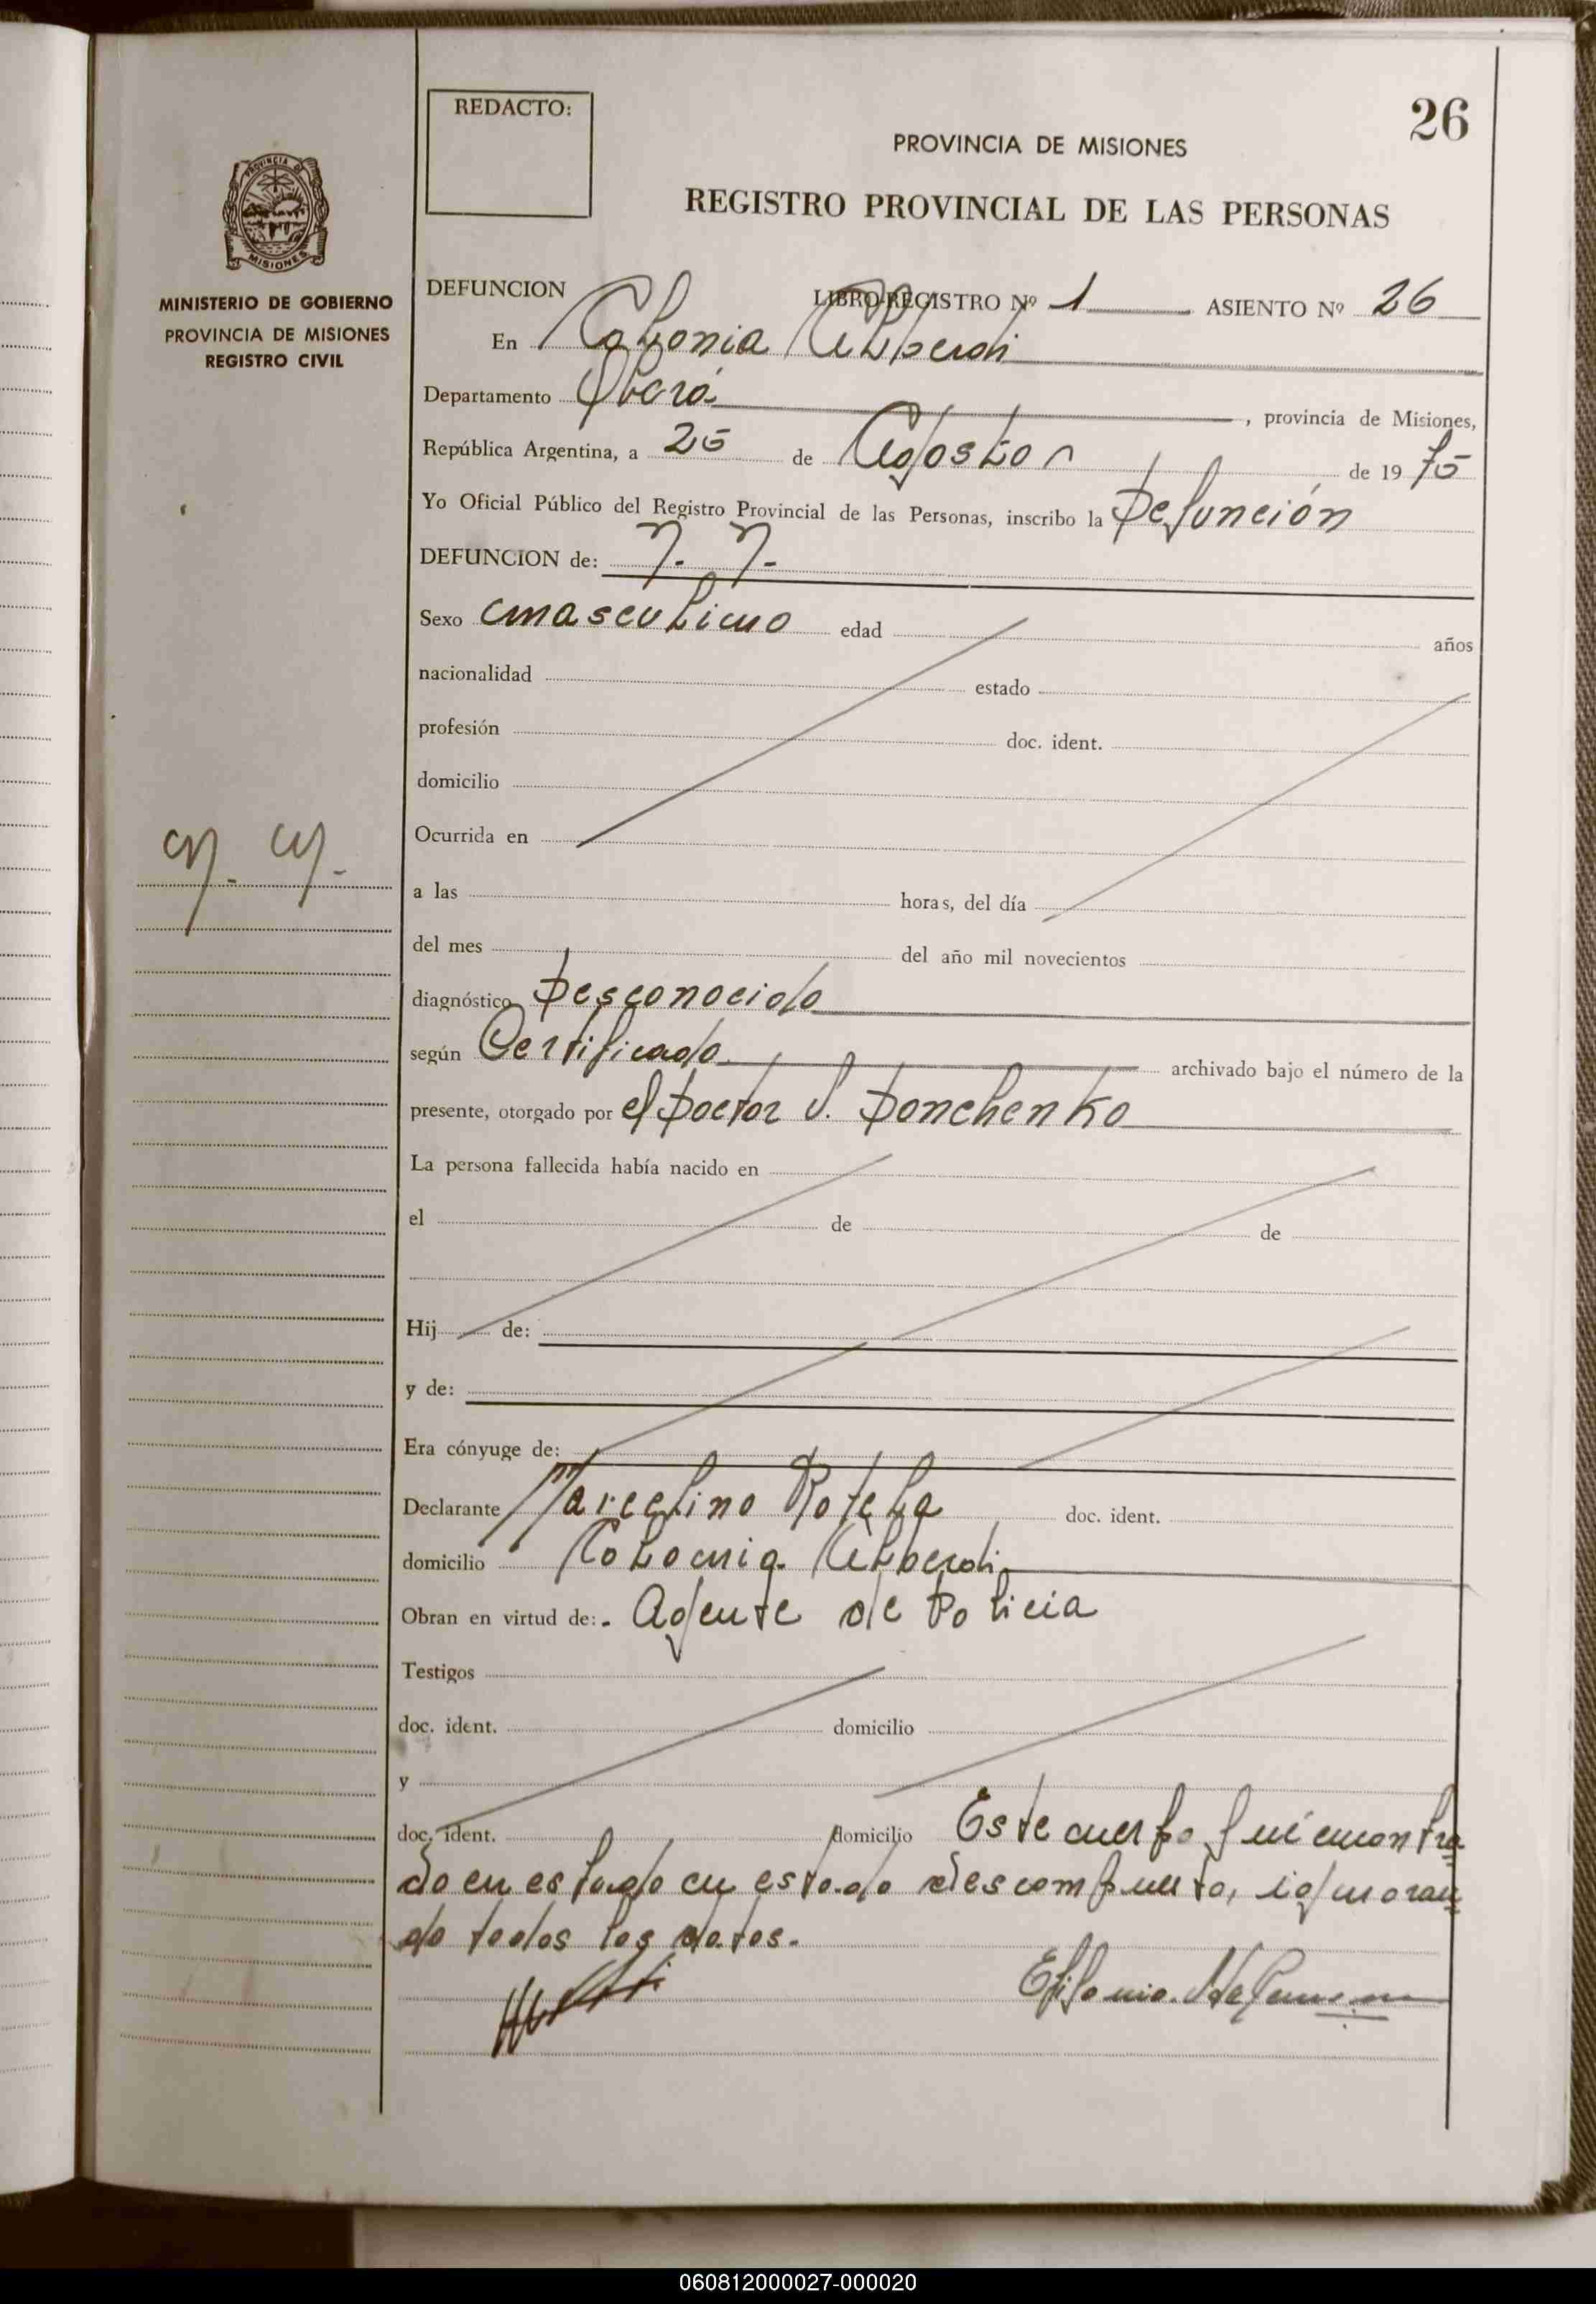 26
REDACTO:
PROVINCIA DE MISIONES
REGISTRO PROVINCIAL DE LAS PERSONAS
PROVINCIA DE
MISIONES
MINISTERIO DE GOBIERNO
PROVINCIA DE MISIONES
REGISTRO CIVIL
N. N.
DEFUNCION LIBRO-REGISTRO Nº 1 ASIENTO Nº 26
En Colonia Alberdi
Departamento Oberá , provincia de Misiones,
República Argentina, a 25 de Agosto de 19 75
Yo Oficial Público del Registro Provincial de las Personas, inscribo la Defunción
DEFUNCION de: N. N.
Sexo masculino edad años
nacionalidad estado
profesión doc. ident.
domicilio
Ocurrida en
a las horas, del día
del mes del año mil novecientos
diagnóstico Desconocido
según Certificado archivado bajo el número de la
presente, otorgado por el Doctor S. Donchenko
La persona fallecida había nacido en
el de de
Hij de:
y de:
Era cónyuge de:
Declarante Marcelino Rotela doc. ident.
domicilio Colonia Alberdi
Obran en virtud de: - Agente de Policia
Testigos
doc. ident. domicilio
y
doc. ident. domicilio Este cuerpo fué encontra
do en estado en estado descompuesto, ignoran
do todos los datos.
060812000027-000020